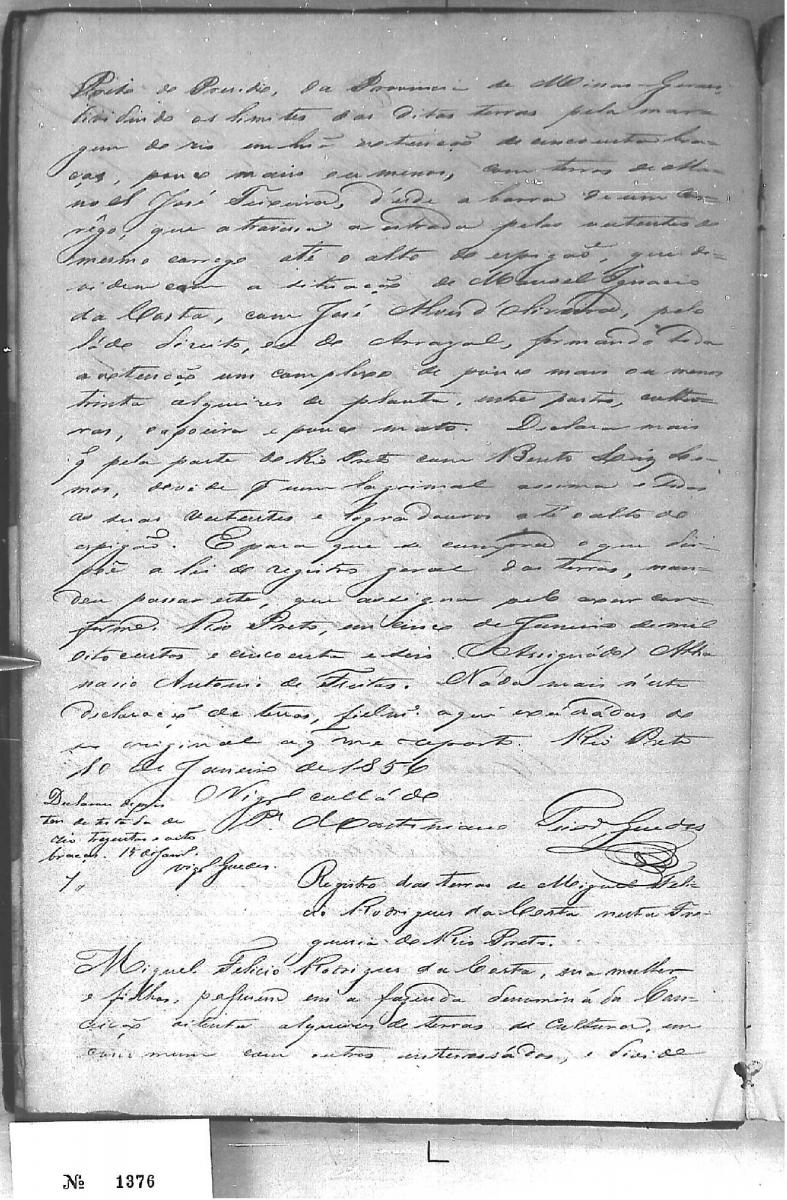 Preto do Presidio, da Provincia de Minas Geraes
dividindo os limites das ditas terras pela mar
gem do rio em hũa extenção de cincoenta bra
ças, pouco mais ou menos, com terras de Ma
noel José Teixeira, d'esde a barra de um cor
rêgo, que atravessa a estrada pelas vertentes do
mesmo corrego até o alto do espigaõ, que di
videm com a situação de Manoel Ignacio
da Costa, com José Alves d'Oliveira, pelo
lado direito, ou do Arrayal, formando toda
a extenção um complexo de pouco mais ou menos
trinta alqueires de planta, entre pastos, cultu
ras, capoeira e pouco mato. Declara mais
q̃ pela parte do Rio Preto com Bento Luiz Le
mos, devide p um lagrimal assima e todas
as suas vertentes e logradouros até o alto do
espigaõ. E para que se cumpra o que dis
põe a lei do registro geral das terras, man
dou passar este, que assigna pelo achar con
forme. Rio Preto, em cinco de Janeiro de mil
oito centos e cincoenta e seis. Assignádo Atha
nasio Antonio de Freitas. Náda mais n'esta
declaração de terras, fielm. aqui exarádas do
seo original a q̃ me reporto. Rio Preto
10 de Janeiro de 1856
O Vigr.º colládo
P.e Martiniano Teixr.ª Guedes
Declarou depois
ter de testada do
rio trezentas e oito
braças. 15 de Jan.º
Vig.º Guedes.
Registro das terras de Miguel Feli
cio Rodrigues da Costa nesta Fre
guesia do Rio Preto.
Miguel Felicio Rodrigues da Costa, sua mulher
e filhos, possuem em a fazenda denomináda Con
ceição oitenta alqueires de terras de cultura, em
cum mum com outros interessádos, e divide
L
Nº 1376